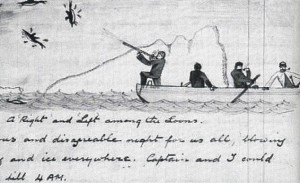 A Right and Left among the Loons.
us and disagreable night for us all, blowing
and ice everywhere. Captain and I could
till 4 AM.